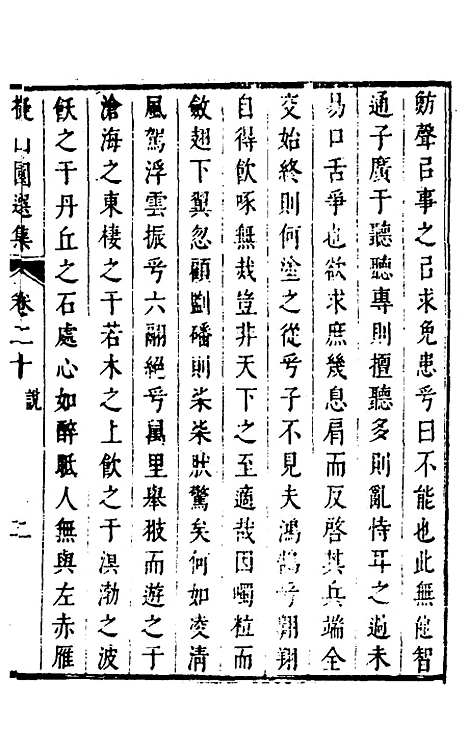 飭聲已事之已求免患乎曰不能也此無他智
通子廣于聽聽專則擅聽多則亂恃耳之過未
易口舌爭也欲求庶幾息肩而反啓其兵端全
交始終則何塗之從乎子不見夫鴻鵠乎翱翔
自得飲啄無哉豈非天下之至適哉因噣粒而
斂翅下翼忽顧劉磻則柴柴狀驚矣何如凌清
風駕浮雲振乎六翮絕乎萬里舉翍而遊之于
滄海之東棲之于若木之上飲之于溟渤之波
飫之于丹丘之石處心如醉眂人無與左赤雁
擬山園選集
卷二十
說